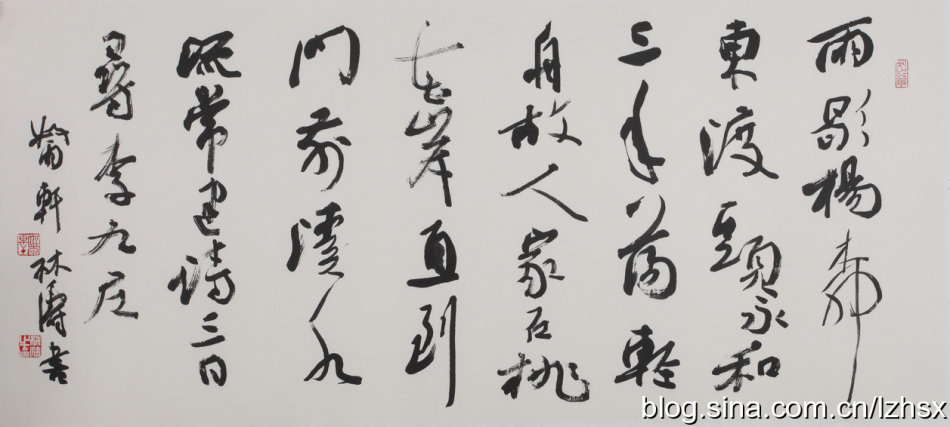 雨歇楊林
東渡頭永和
三年蕩輕
舟故人家在桃
花岸直到
門前溪水
流常建詩三日
尋李九庄
軒林濤書
blog.sina.com.cn/lzhsx